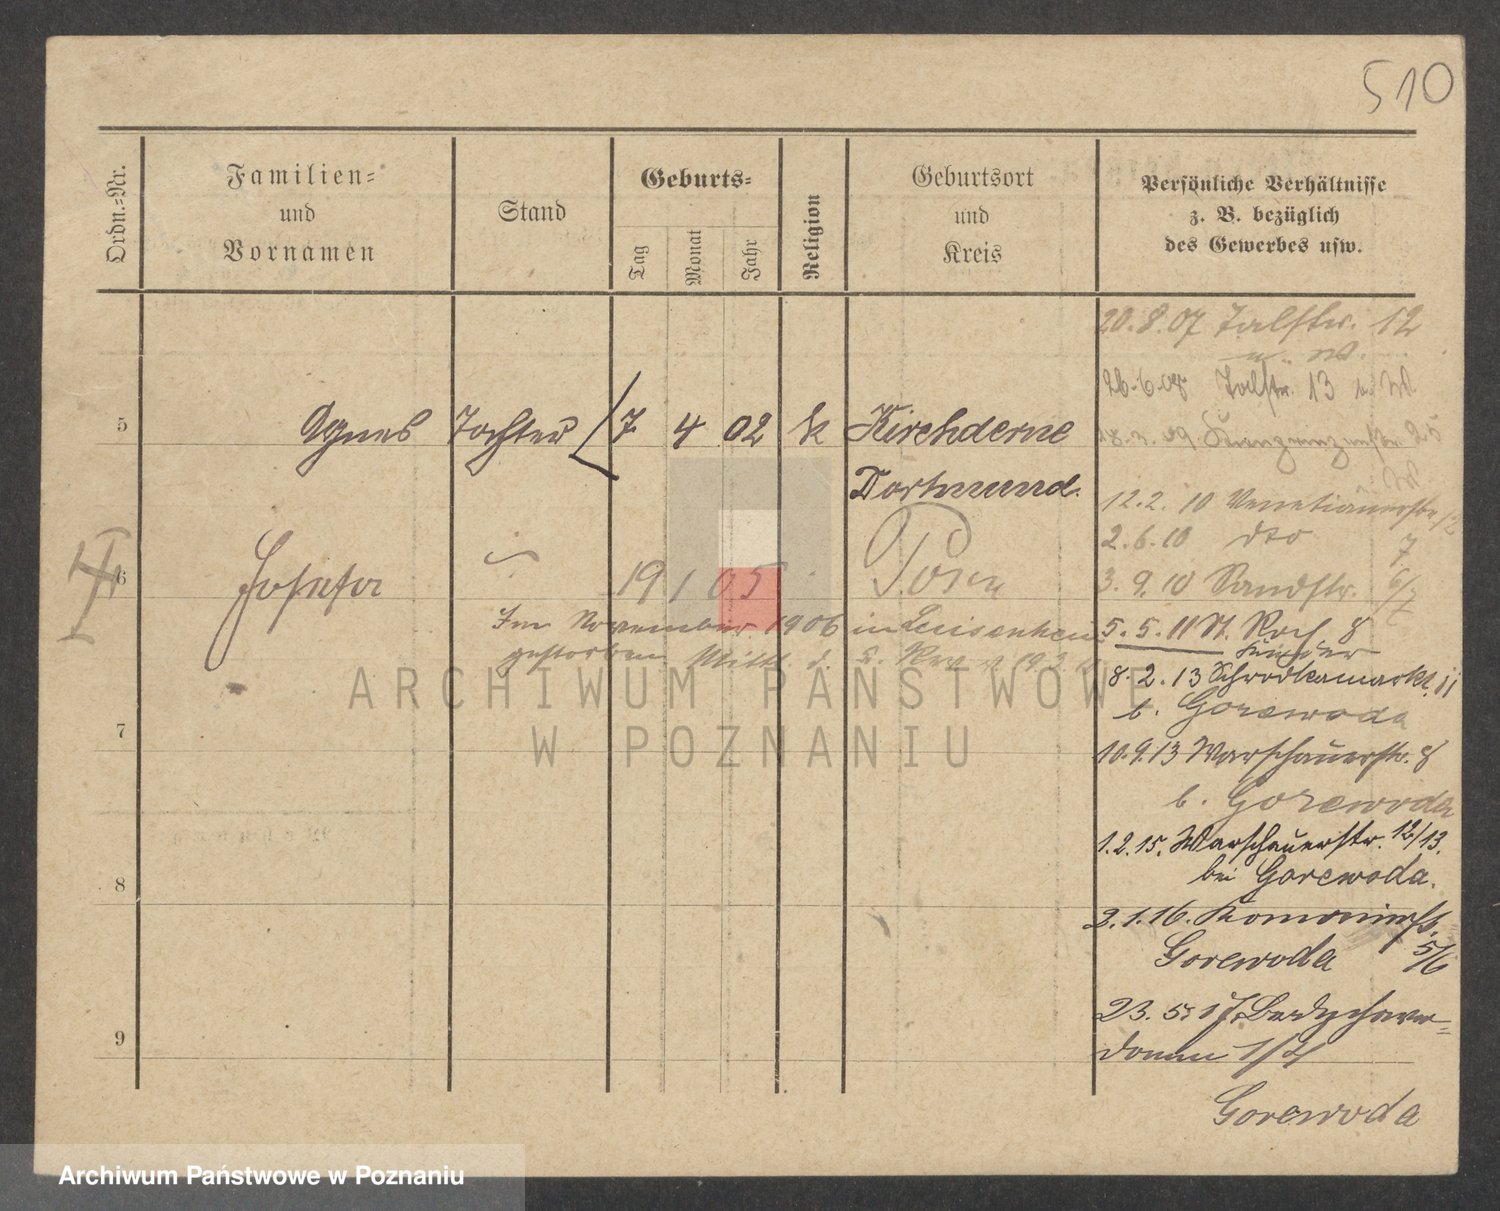 510
Ordn.-Nr.
Familien-
und
Vornamen
Stand
Geburts-
Tag
Monat
Jahr
Religion
Geburtsort
und
Kreis
Persönliche Verhältnisse
z. B. bezüglich
des Gewerbes usw.
20.8.07 Talstr. 12
u. W.
26.6.08 Talstr. 13 u. W
5 Agnes Tochter 7 4 02 k Kirchderne
18.3.09 25
W
Dortmund.
12.2.10 Venetianerstr
2.6.10 dto 7
6 Josefa 19 1 05 Posen
3.9.10 Sandstr. 6/7
Im November 1906 in Luisenhain
gestorben Mittl. d.
5.5.11 St. Roch 8
Kinder
8.2.13 Schrodkamarkt 11
b. Gorewoda
7
10.9.13 Warschauerstr. 8
b. Gorewoda
1.2.15. Warschauerstr. 12/13.
bei Gorewoda.
8
3.1.16.
Gorewoda 5/6
23.5.17.
9
Gorewoda
ARCHIWUM PAŃSTWOWE
W POZNANIU
Archiwum Państwowe w Poznaniu